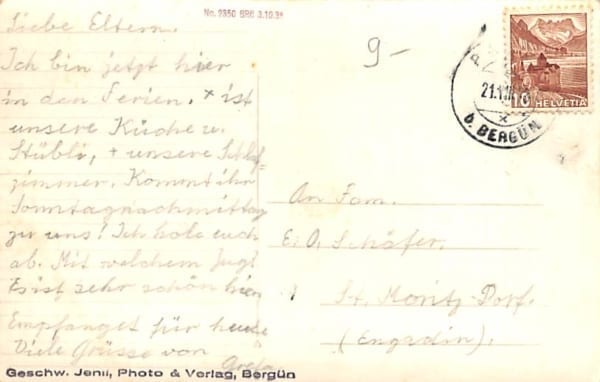 No. 9350 BRB 3.10.3
Liebe Eltern.
Ich bin jetzt hier
in den Ferien. × ist
unsere Küche u.
Stübli, + unsere Schlaf-
zimmer. Kommt ihr
Sonntagnachmittag
zu uns! Ich hole euch
ab. Mit welchem Zug?
Es ist sehr schön hier
Empfanget für heute
Viele Grüsse von
9-
HELVETIA
21.
b. BERGÜN
An Fam.
E. O. Schäfer.
St. Moritz-Dorf.
(Engadin).
Geschw. Jenii, Photo & Verlag, Bergün